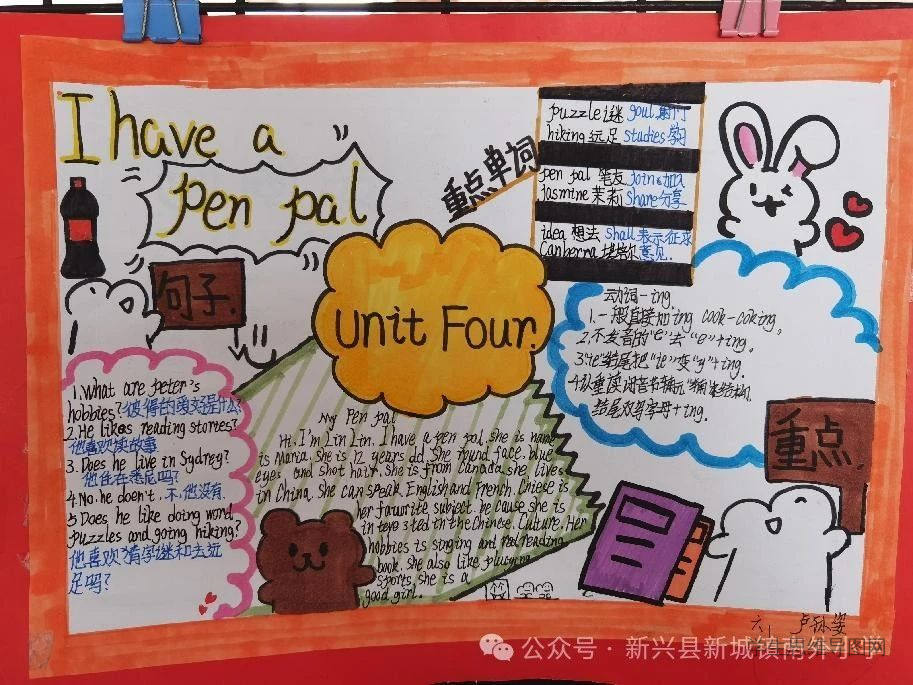 I have a
pen pal
重点单词
puzzle 谜 goul 射门
hiking 远足 studies 学习
pen pal 笔友 Join 加入
Jasmine 茉莉 share 分享
idea 想法 shall 表示征求
Canberra 堪培尔 意见.
句子.
Unit Four.
动词-ing.
1.一般直接加ing cook-coking,
2.不发音的"e"去"e"+ing.
3."ie"结尾把"ie"变"y"+ing.
4.以重读闭音节
结尾双写字母+ing.
重点.
1.What are peter's
hobbies? 彼得的爱好是什么?
2.He likes reading stories?
他喜欢读故事
3. Does he live in Sydney?
他住在悉尼吗?
4.No.he doen't. 不,他没有.
5 Does he like doing word
puzzles and going hiking?
他喜欢猜字谜和去远
足吗?
My Pen pal
Hi. I'm Lin Lin. I have a pen pal. she is name
is Maria. she is 12 years dd. She round face. blue
eyes and shot hair. she is from Canada. she lives
in China. She can speak English and French. Chiese is
her favourite subiect. be cause she is
in teye sted in the Chinese. Culture. Her
hobbies is singing and read reading
book. she also like playing
sports. she is a
good girl.
六
公众号 · 新兴县新城镇南外小学